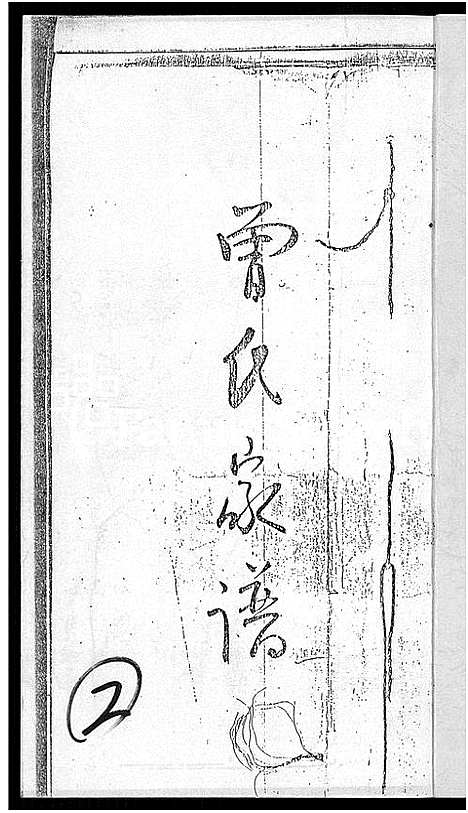 曾氏家谱
2